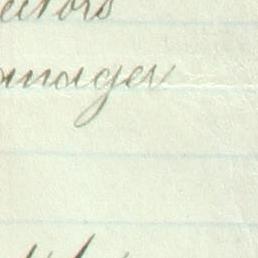 ectors
anager